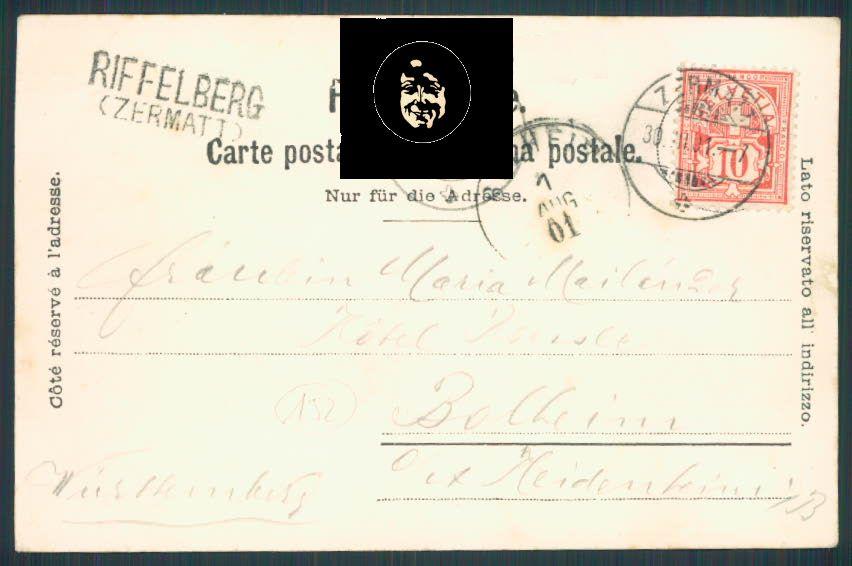 RIFFELBERG
(ZERMATT)
Carte posta postale.
Nur für die Adresse.
Côté réservé à l'adresse.
Lato riservato all' indirizzo.
1
AUG
01
10
Fräulein Maria Mailänder
Hôtel
Bolheim
Heidenheim
Württemberg
152